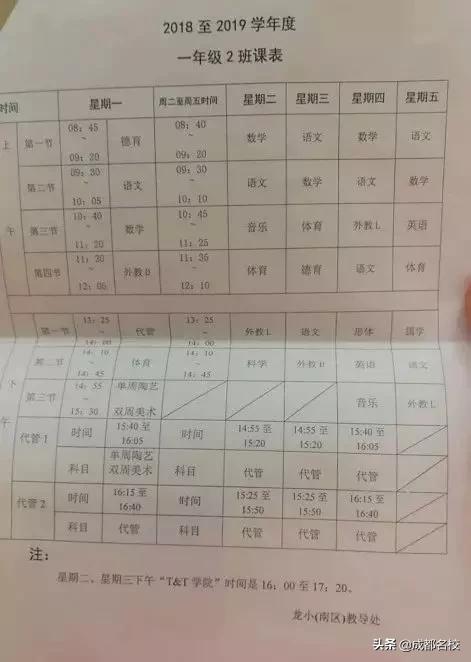 2018 至 2019 学年度
一年级 2 班课表
时间 星期一 周二至周五时间 星期二 星期三 星期四 星期五
上午 第一节 08：45 ~ 09：20 德育 08：40 ~ 09：20 数学 语文 数学 语文
第二节 09：30 ~ 10：05 语文 09：30 ~ 10：10 语文 数学 语文 数学
第三节 10：40 ~ 11：20 数学 10：45 ~ 11：25 音乐 体育 外教L 英语
第四节 11：30 ~ 12：05 外教B 11：35 ~ 12：10 体育 德育 语文 体育
下午 第一节 13：25 ~ 14：00 代管 13：25 ~ 14：00 外教L 语文 形体 国学
第二节 14：10 ~ 14：45 体育 14：10 ~ 14：45 科学 外教B 英语 语文
第三节 14：55 ~ 15：30 单周陶艺 双周美术 音乐 外教L
代管1 时间 15:40 至 16:05 时间 14:55 至 15:20 14:55 至 15:20 15:40 至 16:05
科目 单周陶艺 双周美术 科目 代管 代管 代管
代管2 时间 16:15 至 16:40 时间 15:25 至 15:50 15:25 至 15:50 16:15 至 16:40
科目 代管 科目 代管 代管 代管
注：
星期二、星期三下午“T&T 学院”时间是 16：00 至 17：20。
龙小(南区)教导处
头条 @成都名校